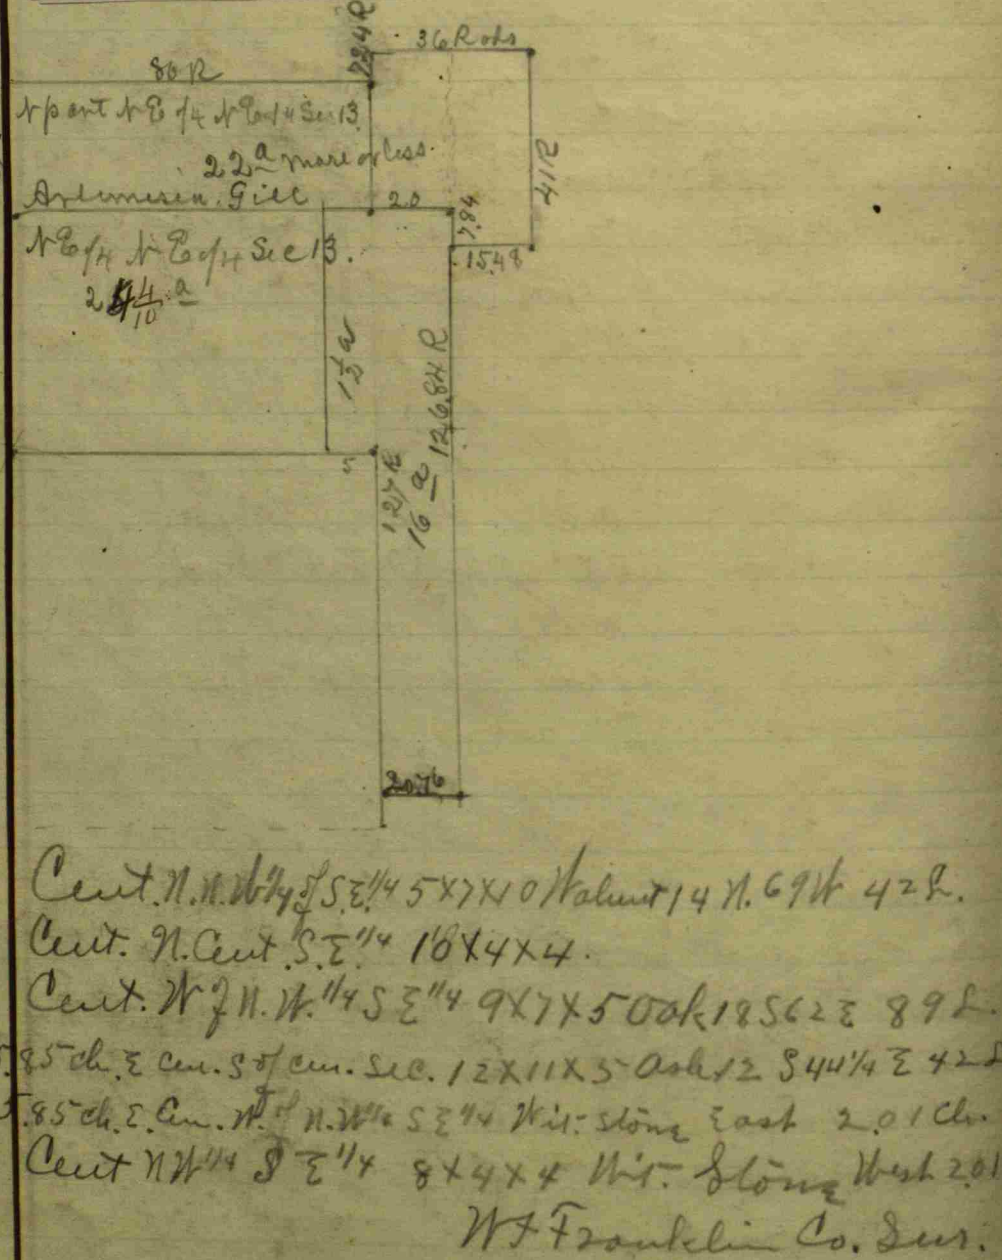 7.84 R
36 Rods
80 R
N part N E/4 N E/4 Sec 13
22 a more or less
41 R
Artemesia Gill
20
7.84
N E/4 N E/4 Sec 13.
15.48
4/10 a
1 1/2 a
126.84 R
5
127 R
16 a
20.76
Cent. N. N.W. 1/4 of S.E. 1/4 5X7X10 Walnut 14 N. 69 W 42 L.
Cent. N. Cent. S.E. 1/4 10X4X4.
Cent. W of N.W. 1/4 S E 1/4 9X7X5 Oak 18 S 62 E 89 L.
.85 ch. E cen. S of cen. Sec. 12X11X5 Ash 12 S 44 1/4 E 42 L
.85 ch. E. Cen. W. of N.W 1/4 S E 1/4 Wit. Stone East 2.01 Ch.
Cent N W 1/4 S E 1/4 8X4X4 Wit. Stone West 2.01
W F Franklin Co. Sur.